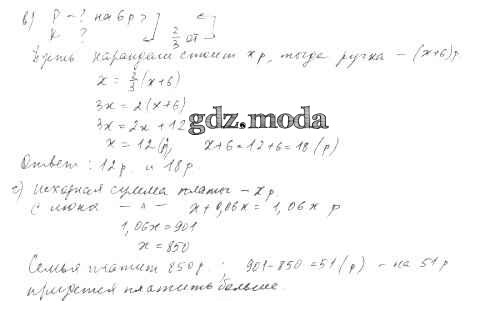 в) Р - ? на 6 р >
К ? 2/3 от
Пусть карандаш стоит x р, тогда ручка - (x+6) р
x = 2/3 (x+6)
3x = 2(x+6)
3x = 2x + 12
gdz.moda
x = 12 (р), x+6 = 12+6 = 18 (р)
Ответ: 12 р. и 18 р.
с) исходная сумма платы - x р.
С июня - " - x + 0,06x = 1,06x р
1,06x = 901
x = 850
Семья платит 850 р.; 901 - 850 = 51 (р) - на 51 р
придется платить больше.